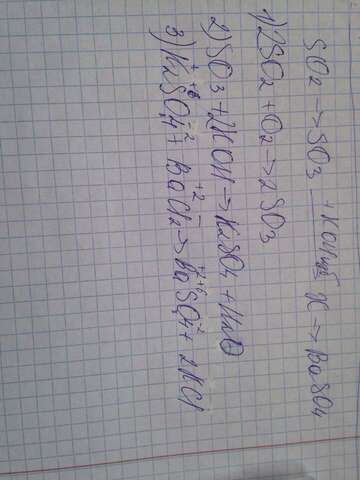 SO2 → SO3 +KOH изб → X → BaSO4
1) 2SO2 + O2 → 2SO3
2) SO3 + 2KOH → K2SO4 + H2O
+6 -2 +2 - +2 +6 -2
3) K2SO4 + BaCl2 → BaSO4 + 2KCl